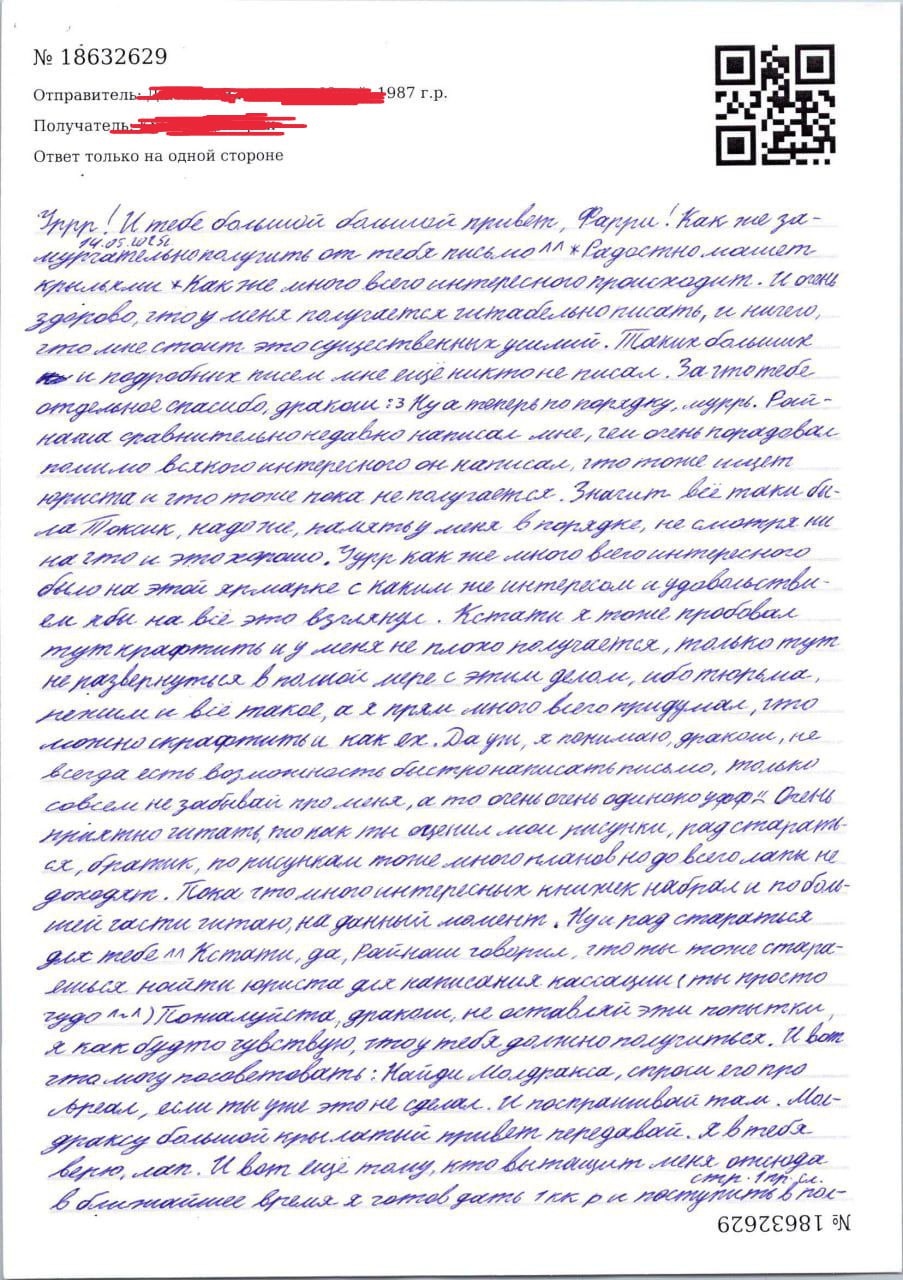 № 18632629
Отправитель: 1987 г.р.
Получатель:
Ответ только на одной стороне
Уррр! И тебе большой большой привет, Фарри! Как же за-
14.05.2025г
мурчательно получить от тебя письмо ^^ *Радостно машет
крыльями* Как же много всего интересного происходит. И очень
здорово, что у меня получается читабельно писать, и ничего,
что мне стоит это существенных усилий. Таких больших
и подробных писем мне ещё никто не писал. За что тебе
отдельное спасибо, дракош :3 Ну а теперь по порядку, муррь. Рай-
наш сравнительно недавно написал мне, чем очень порадовал
помимо всякого интересного он написал, что тоже ищет
юриста и что тоже пока не получается. Значит всё таки бы-
ла Токсик, надо же, память у меня в порядке, не смотря ни
на что и это хорошо. Уррр как же много всего интересного
было на этой ярмарке с каким же интересом и удовольстви-
ем я бы на всё это взглянул. Кстати я тоже пробовал
тут крафтить и у меня не плохо получается, только тут
не развернуться в полной мере с этим делом, ибо тюрьма,
режим и всё такое, а я прям много всего придумал, что
можно скрафтить и как ех. Да уж, я понимаю, дракош, не
всегда есть возможность быстро написать письмо, только
совсем не забывай про меня, а то очень очень одиноко уфф.. Очень
приятно читать, то как ты оценил мои рисунки, рад старать-
ся, братик, по рисункам тоже много планов но до всего лапы не
доходят. Пока что много интересных книжек набрал и по боль-
шей части читаю, на данный момент. Ну и рад старатися
для тебе ^^ Кстати, да, Райнаш говорил, что ты тоже стара-
ешься найти юриста для написания кассации (ты просто
чудо ^~^) Пожалуйста, дракош, не оставляй эти попытки,
я как будто чувствую, что у тебя должно получиться. И вот
что могу посоветовать: Найди Молдракса, спроси его про
Ареал, если ты уже это не сделал. И поспрашивай там. Мол-
драксу большой крылатый привет передавай. Я в тебя
верю, лап. И вот ещё тому, кто вытащит меня отсюда
стр. 1 пр. сл.
в ближайшее время я готов дать 1кк р и поступить в пол-
№ 18632629